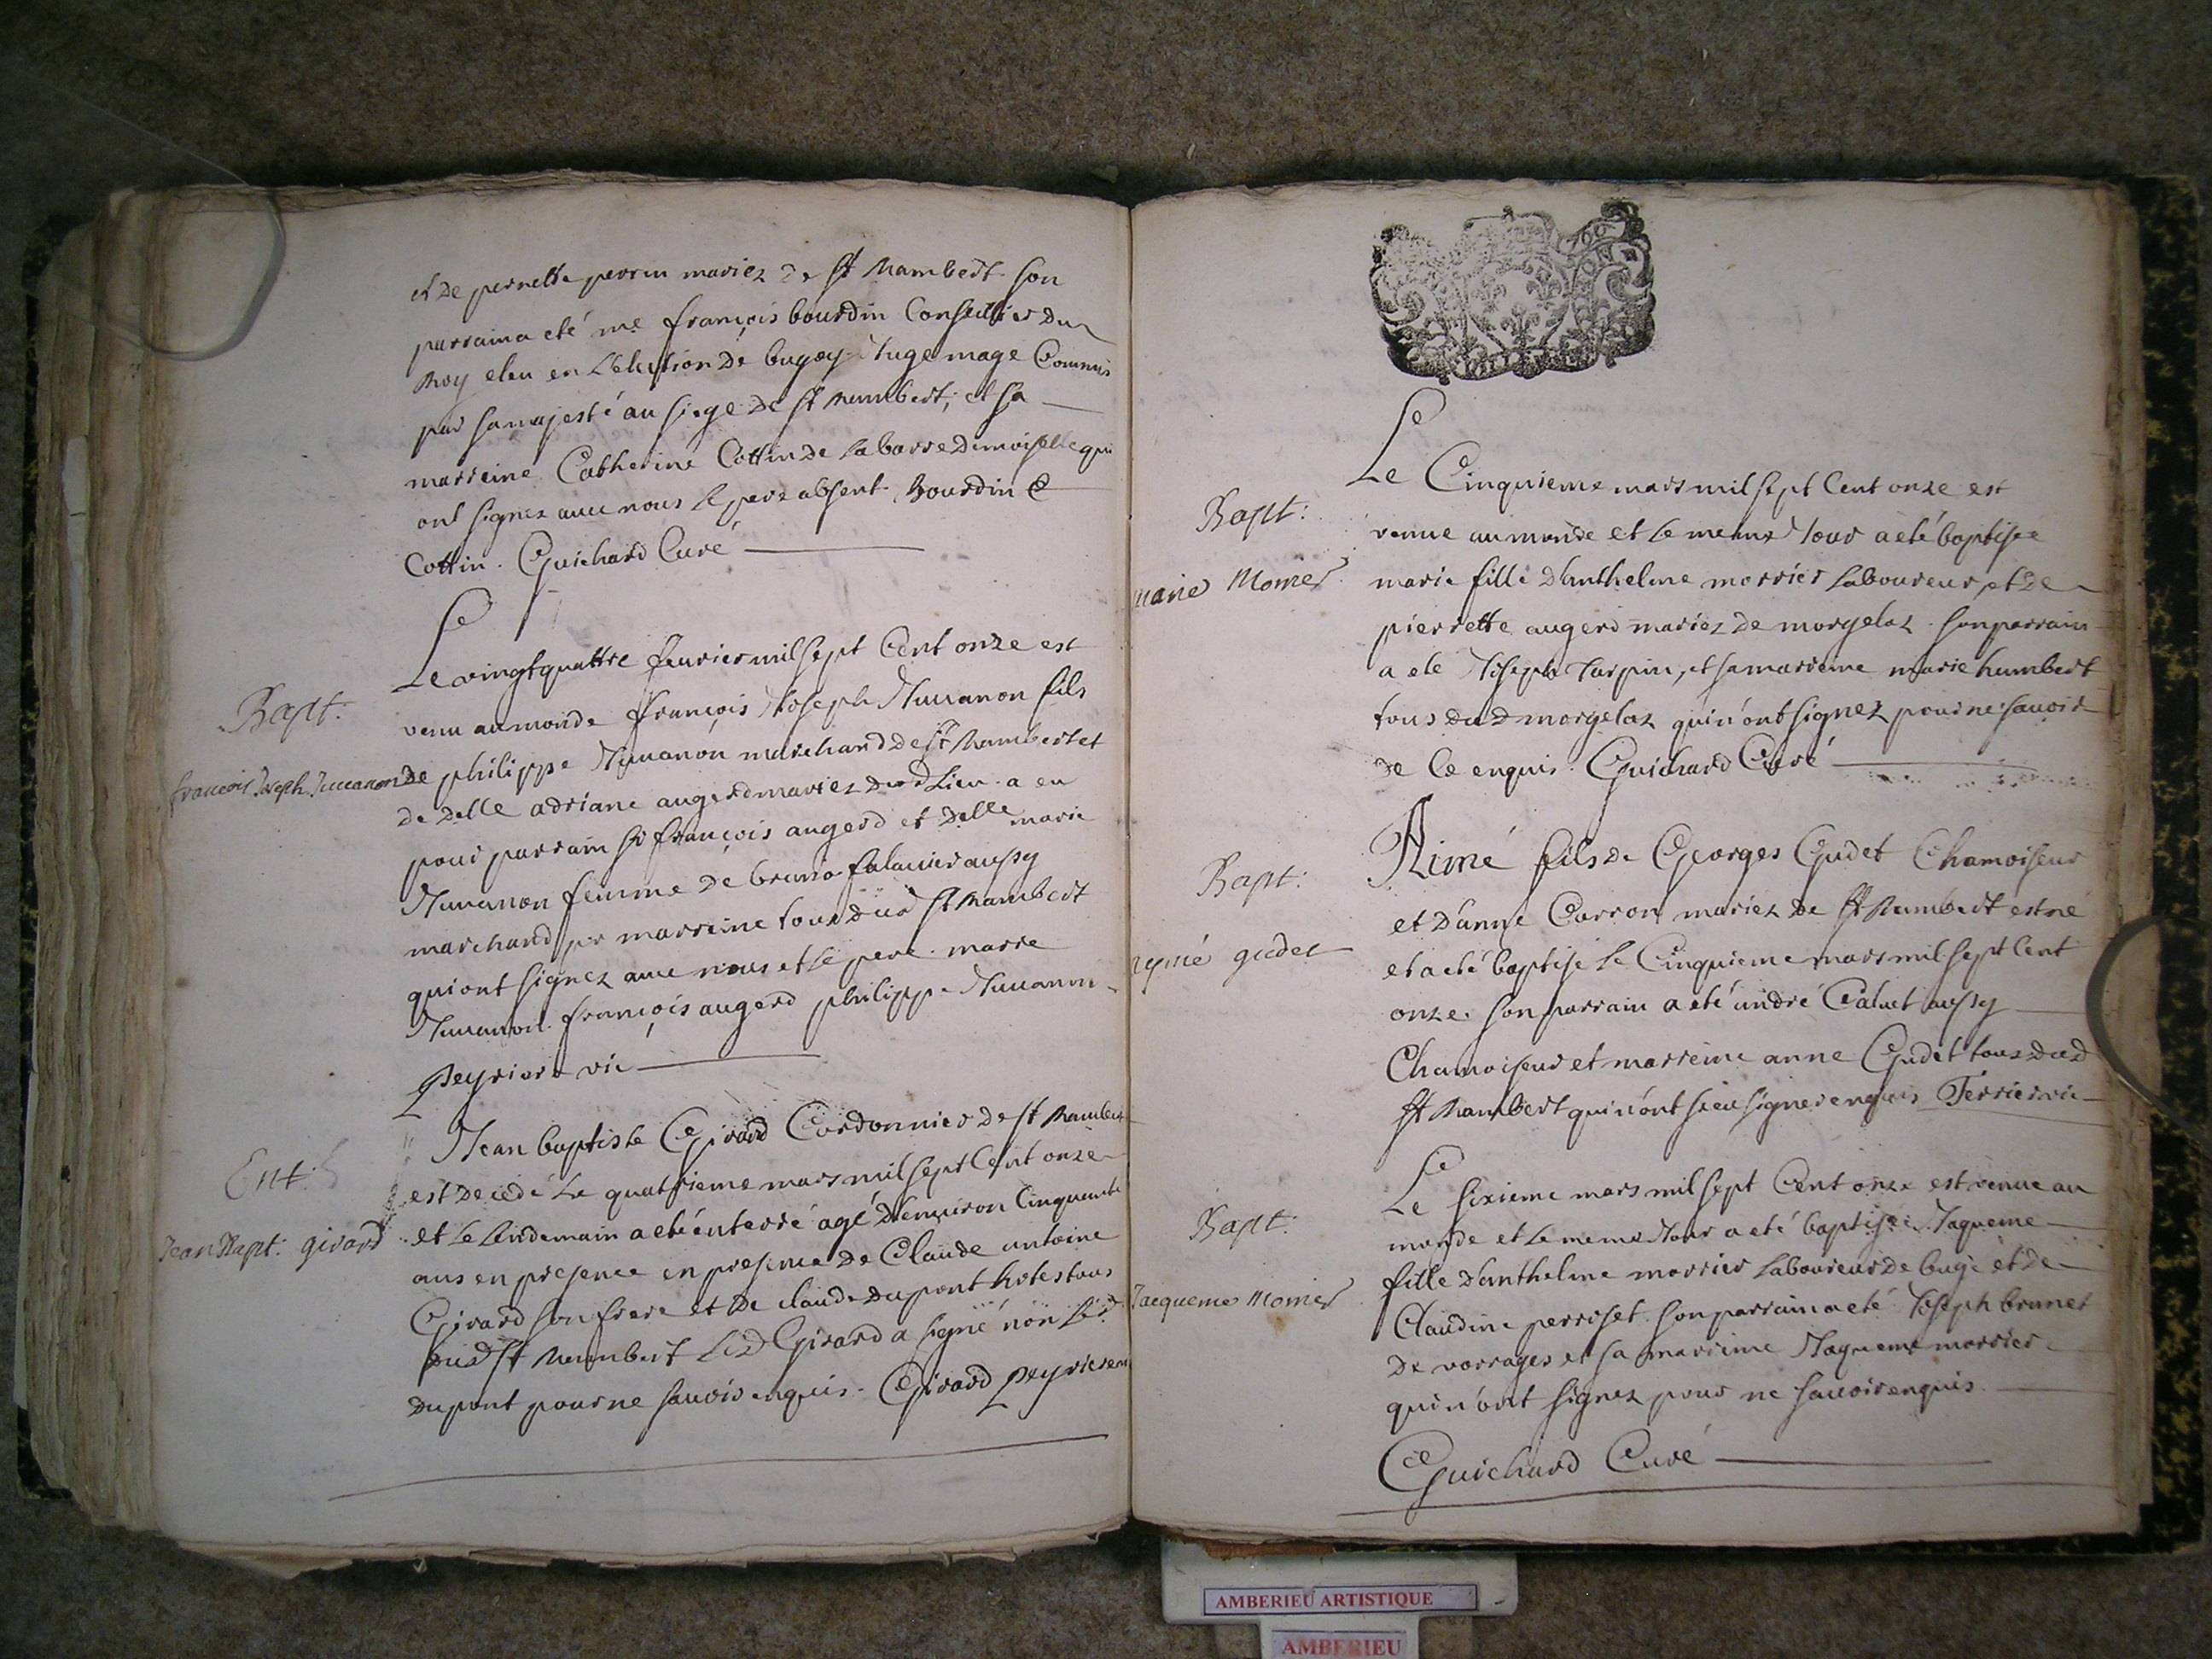 et de pernette perrin mariez de st Rambert son
parrain a eté me françois bourdin Conseillier du
Roy eleu en L'election de bugey Juge mage Commis
par sa majesté au siege de st Rambert, et sa
marreine Catherine Cottin de La barre Demoiselle qui
ont signez avec nous Le pere absent Bourdin C
Cottin. Guichard Curé
Le vingt quattre feurier mil sept Cent onze est
Bapt:
venu au monde françois Joseph Juuanon fils
francois Joseph Juuanon
de philippe Juuanon marchand de st Rambert et
de Delle adriane augerd mariez dud Lieu a eu
pour parrain sr françois augerd et Delle marie
Juuanon femme de bruno falauier aussy
marchand pr marreine tous dud st Rambert
qui ont signez avec nous et le pere. marie
Juuanon. françois augerd philippe Juuanon
Peyrier vic
Jean baptiste Girard Cordonnier de st Rambert
Ent:
est decedé Le quatrieme mars mil sept Cent onze
Jean Bapt: girard
et Le Lendemain a eté enterré agé d'enuiron Cinquante
ans en presence en presence de Claude antoine
Girard son frere et de claude dupont hotes tous
dud st Rambert Led Girard a signé non Led.
dupont pour ne sauoir enquis. Girard Peyrier
Le Cinquieme mars mil sept Cent onze est
Bapt:
venue au monde et Le meme Jour a eté baptisée
marie Morrier
marie fille d'anthelme morrier Laboureur et de
pierrette augerd mariez de morgelaz son parrain
a ete Joseph Tarpin, et sa marreine marie humbert
tous dud morgelaz qui n'ont signez pour ne sauoir
de Ce enquis. Guichard Curé
Aimé fils de Georges Gudet Chamoiseur
Bapt:
et d'anne Carron mariez de st Rambert est né
aymé gudet
et a eté baptisé Le Cinquieme mars mil sept Cent
onze. son parrain a eté andré Caluet aussy
Chamoiseur et marreine anne Gudet tous dud
st Rambert qui n'ont sceu signer enquis Terrier vic
Le sixieme mars mil sept Cent onze est venue au
Bapt:
monde et Le meme Jour a eté baptisée Jaqueme
fille d'anthelme morrier Laboureur de bugé et de
Jacqueme Morrier
Claudine perroset. son parrain a eté Joseph brunet
de vorrages et sa marreine Jaqueme morrier
qui n'ont signez pour ne sauoir enquis.
Guichard Curé
AMBERIEU ARTISTIQUE
AMBERIEU